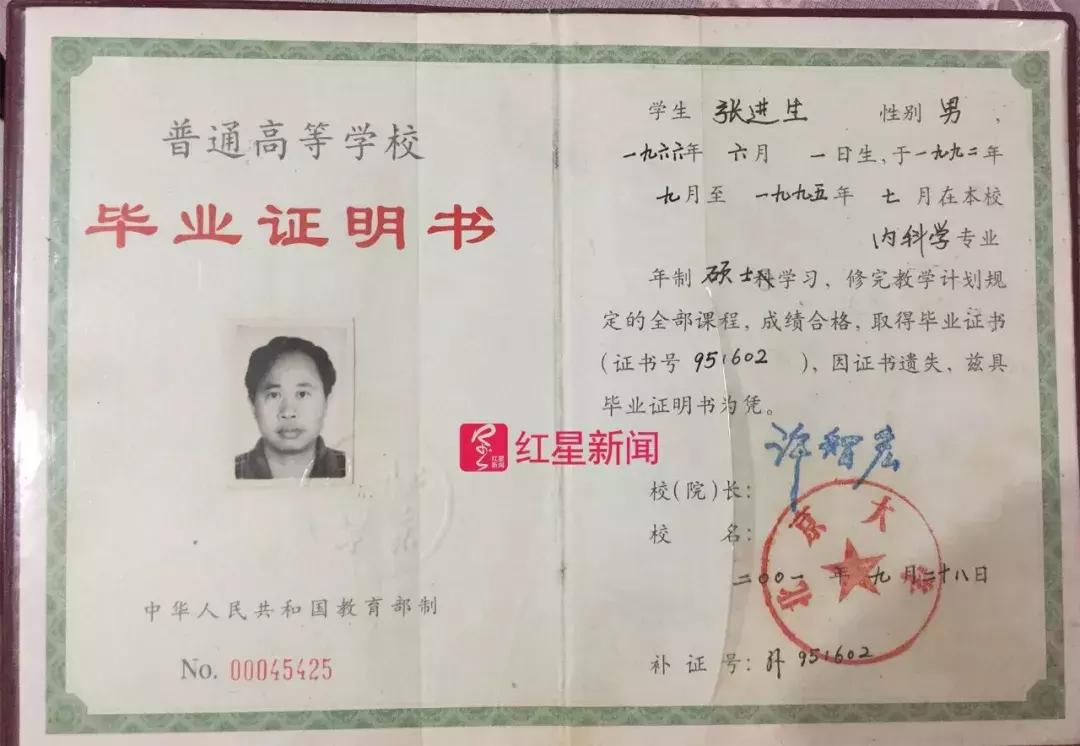 普通高等学校
毕业证明书
中华人民共和国教育部制
No. 00045425
学生 张进生 性别 男，
一九六六年 六月 一日生，于一九九二年
九月至 一九九五年 七月在本校
内科学专业
年制 硕士科学习，修完教学计划规
定的全部课程，成绩合格，取得毕业证书
(证书号 951602 )，因证书遗失，兹具
毕业证明书为凭。
许智宏
校(院)长：
校 名：
北京大学
二〇〇一 年 九 月二十八日
补 证 号：补 951602
红星新闻
红星新闻